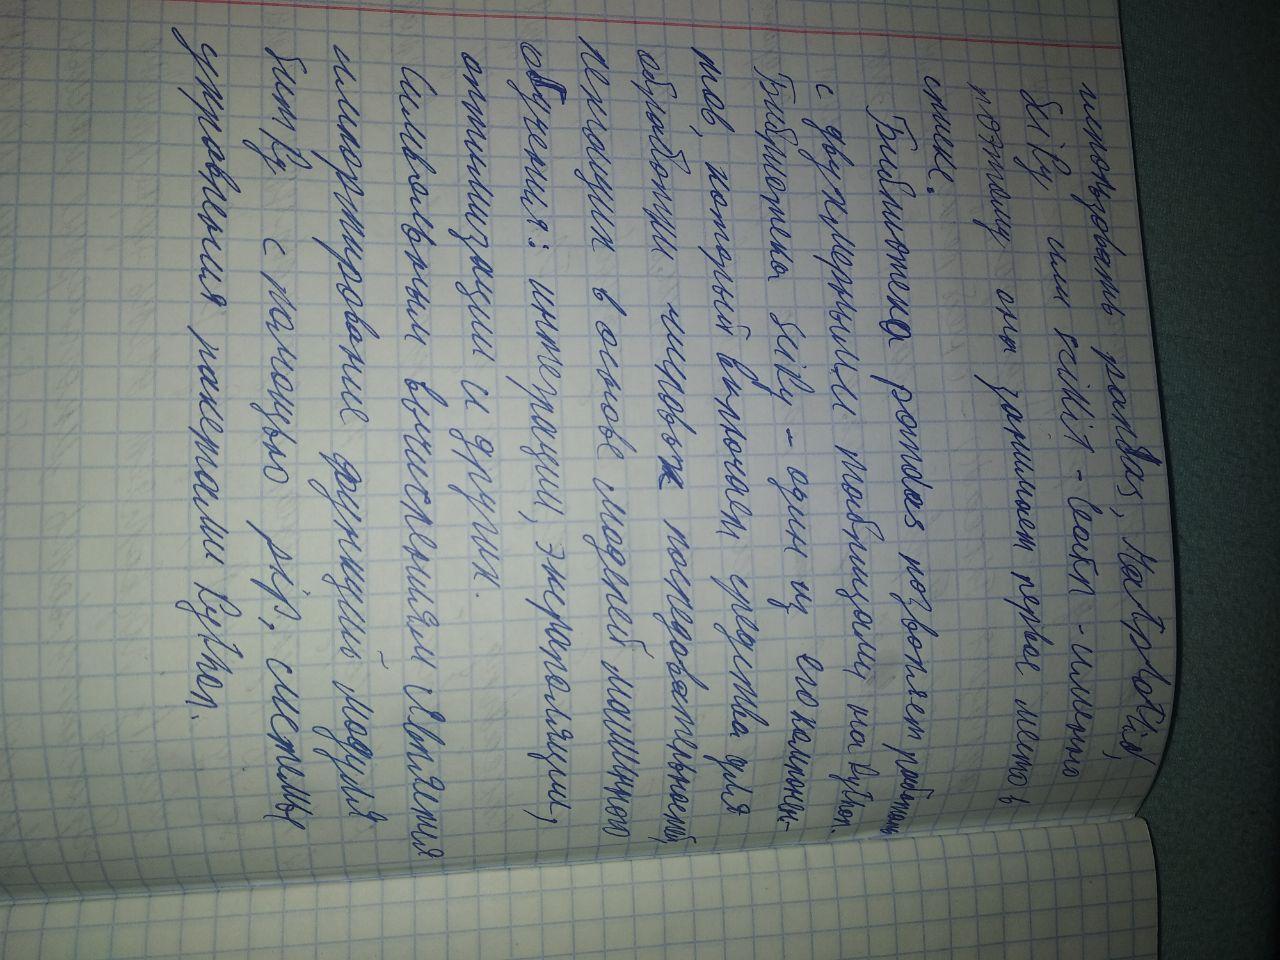 использовать pandas, Matplotlib,
SciPy или scikit-learn - именно
поэтому они занимает первое место в
списке.
Библиотека pandas позволяет работать
с двухмерными таблицами на Python.
Библиотека SciPy - один из его компонен-
тов, который включает средства для
обработки числовых последовательностей,
лежащих в основе моделей машинного
обучения: интеграции, экстраполяции,
оптимизации и других.
Символьным вычислениям является
импортирование функций модуля
SimPy с помощью pip: системы
управления пакетами Python.